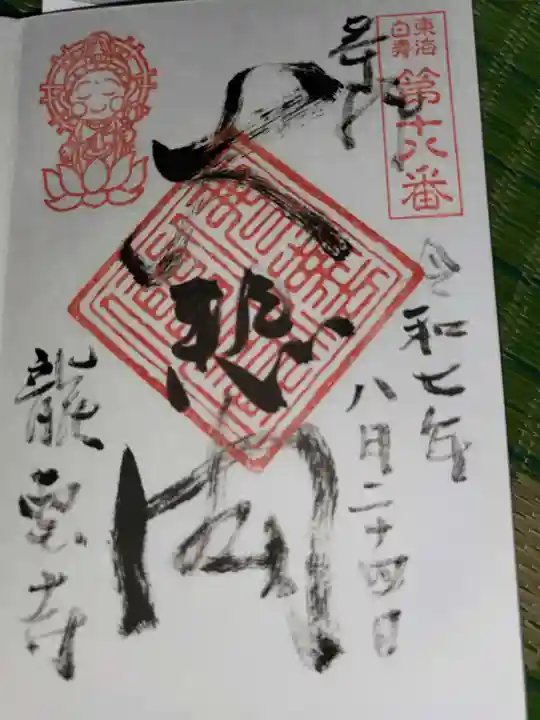 東海
白寿
第十八番
奉拝
令和七年
八月二十四日
大悲閣
龍雲寺